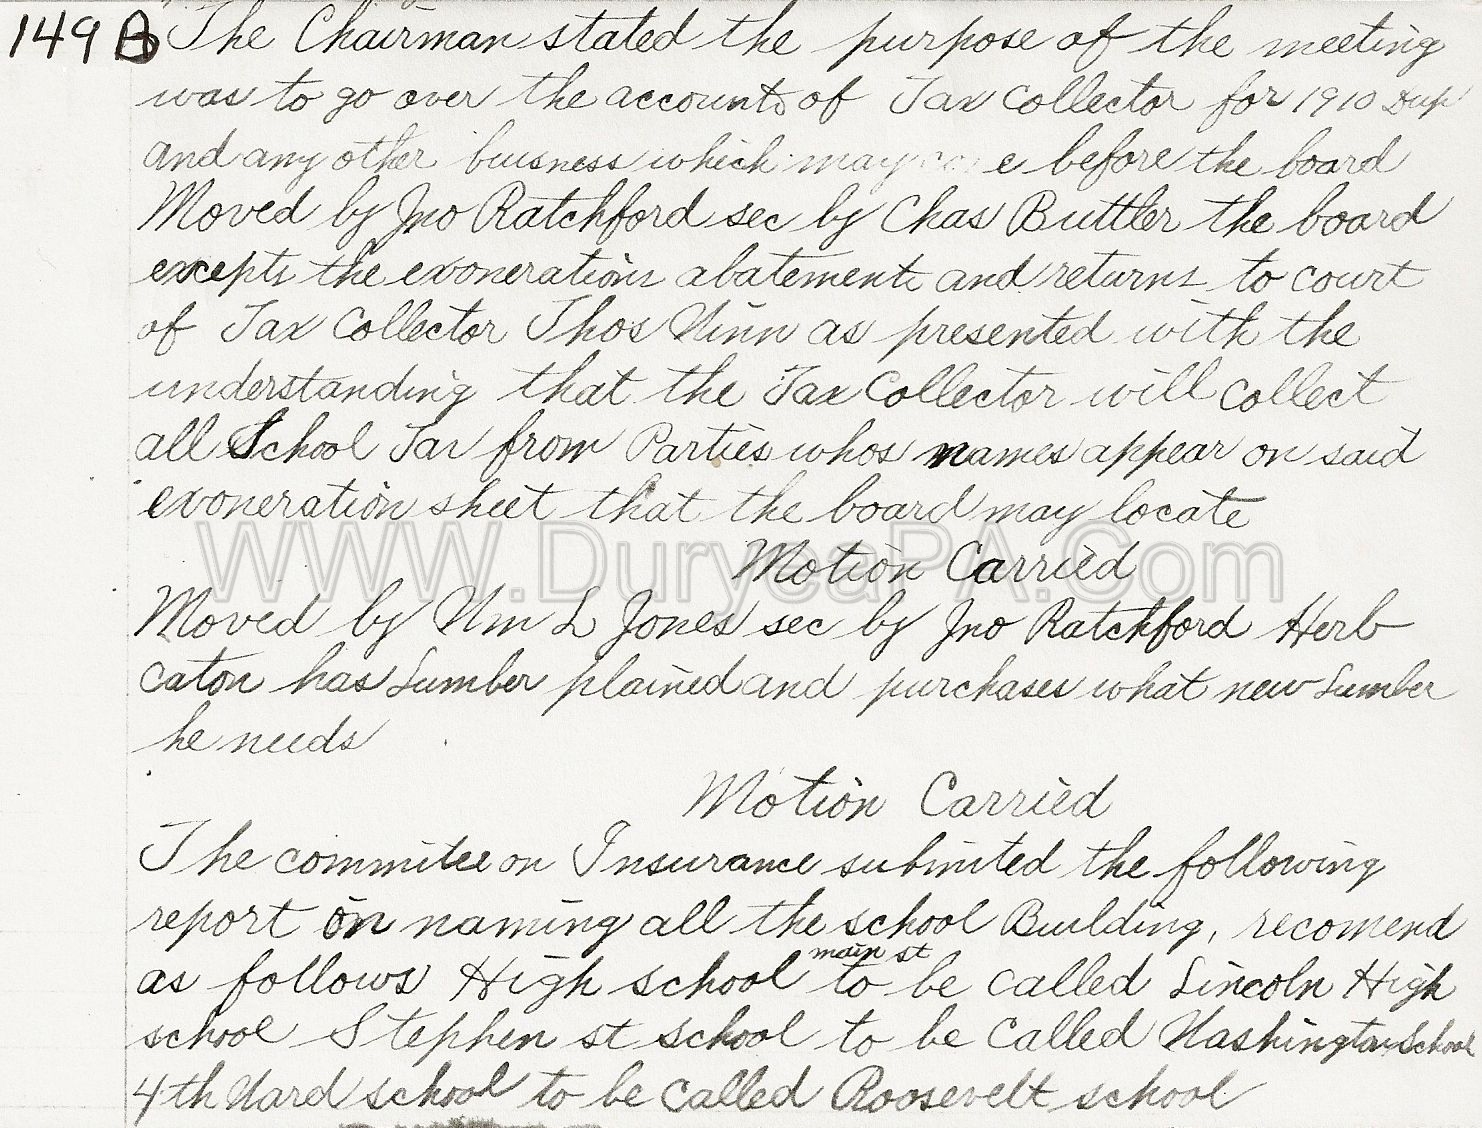 149 B The Chairman stated the purpose of the meeting
was to go over the accounts of Tax Collector for 1910 Dup
and any other buisness which may come before the board
Moved by Jno Ratchford sec by Chas Buttler the board
excepts the exonerations abatements and returns to court
of Tax Collector Thos Winn as presented with the
understanding that the Tax Collector will collect
all School Tax from Parties whos names appear on said
exoneration sheet that the board may locate
Motion Carried
WWW.DuryeaPA.Com
Moved by Wm L Jones sec by Jno Ratchford Herb
Caton has Lumber plained and purchases what new Lumber
he needs
Motion Carried
The commitee on Insurance submited the following
report on naming all the school Building, recomend
main st
as follows High school to be called Lincoln High
school Stephen st school to be called Washington School
4th Ward school to be called Roosevelt school